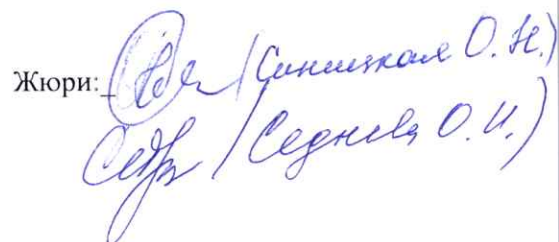 Жюри: (Синицкая О. Н.)
(Седнева О. И.)